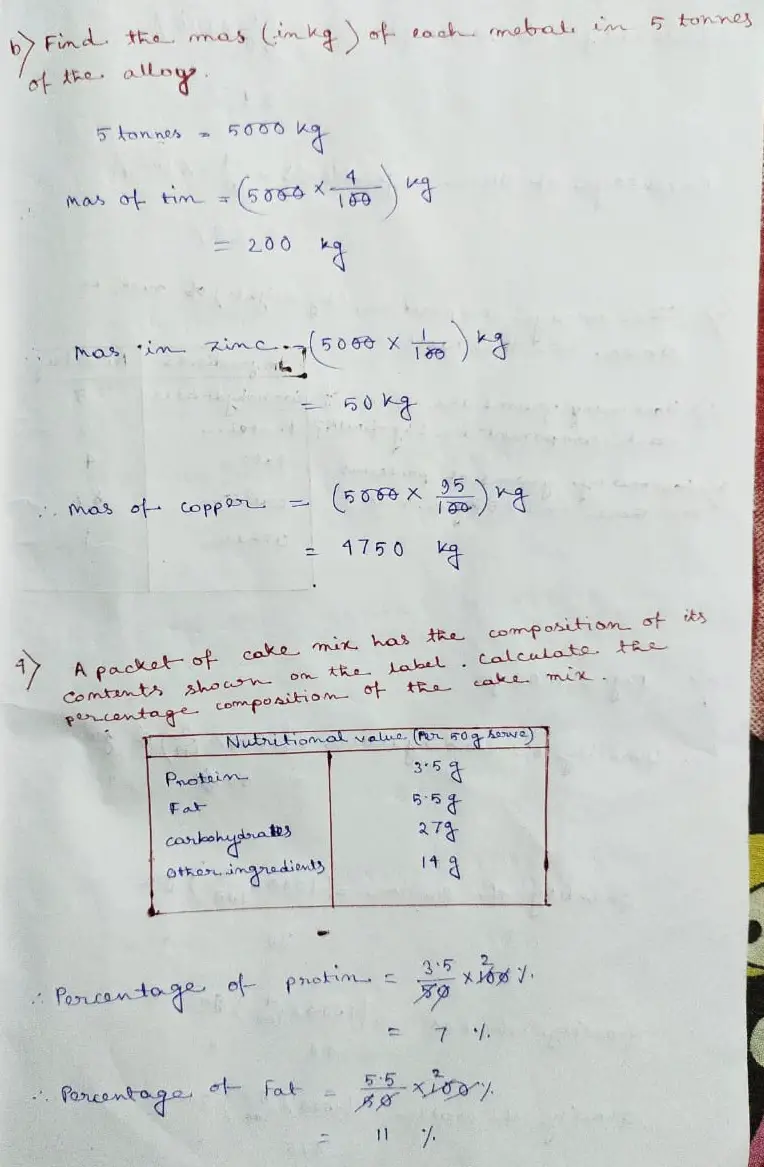 b) Find the mas (in kg) of each metal in 5 tonnes
of the alloy.
5 tonnes = 5000 kg
mas of tin = (5000 × 4/100) kg
= 200 kg
mas in zinc = (5000 × 1/100) kg
= 50 kg
∴ mas of copper = (5000 × 95/100) kg
= 4750 kg
4) A packet of cake mix has the composition of its
contents shown on the label. Calculate the
percentage composition of the cake mix.
Nutritional value (Per 50g serve)
Protein 3.5 g
Fat 5.5 g
carbohydrates 27g
other ingredients 14 g
∴ Percentage of protin = 3.5/50 × 100 2 %
= 7 %
∴ Percentage of Fat = 5.5/50 × 100 2 %
= 11 %